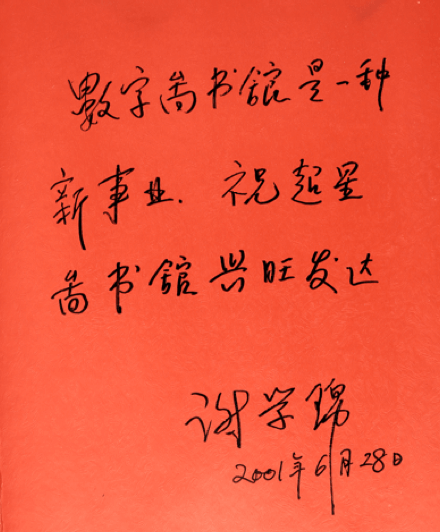 數字啚书館是一种
新事业.祝超星
啚书館兴旺发达
谢学锦
2001年6月28日